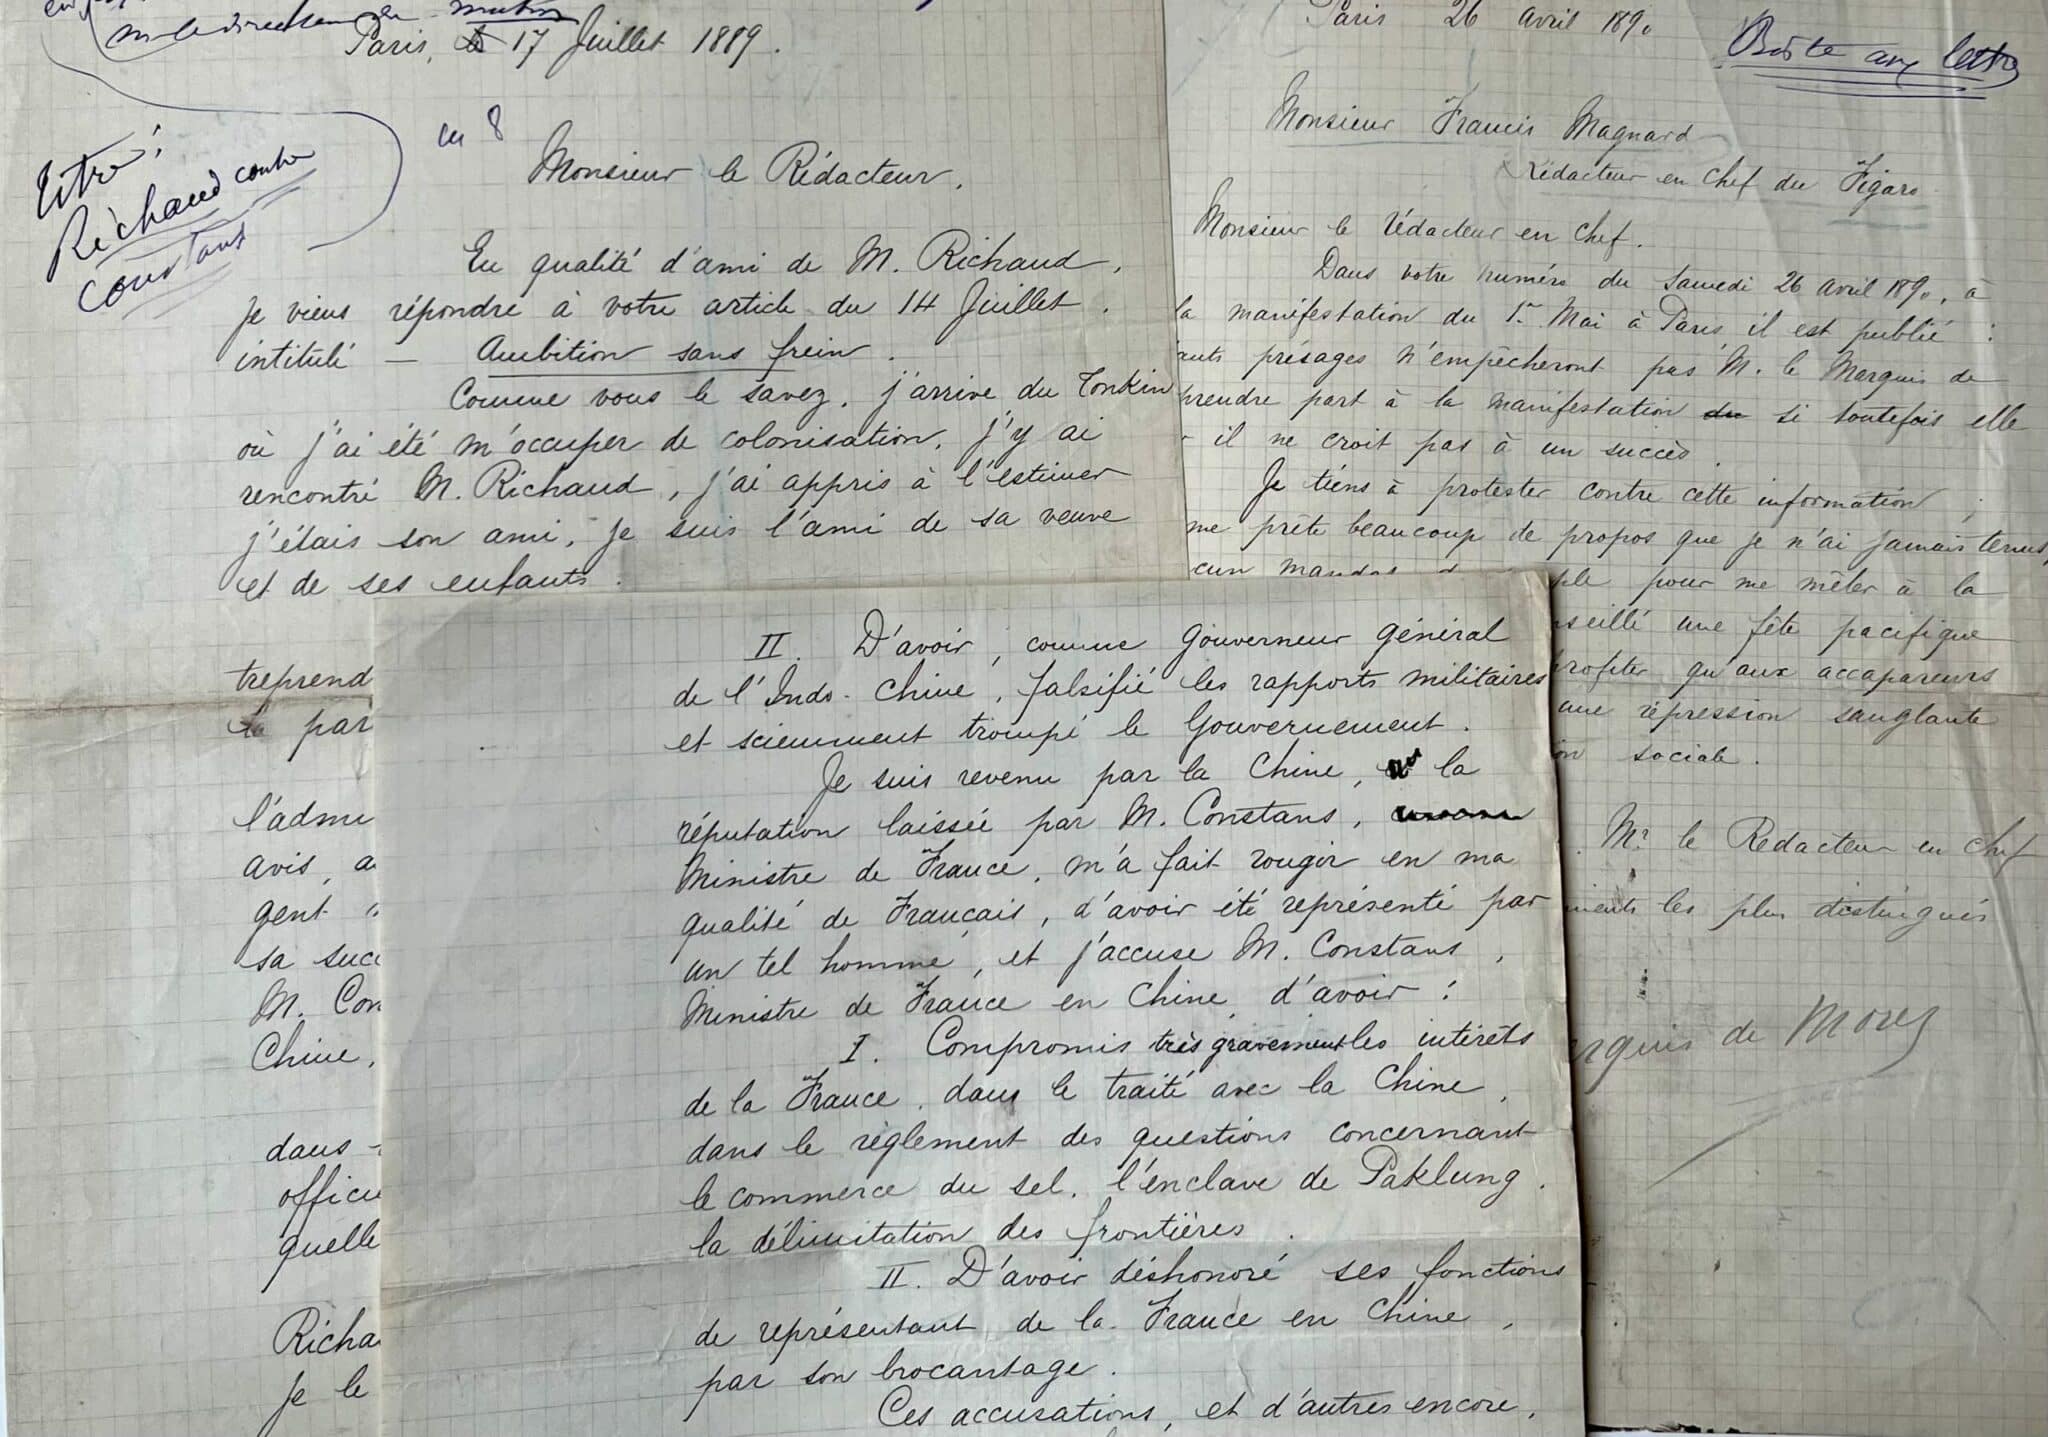 Paris, le 17 Juillet 1889.
en 8
titre :
Richaud contre
Constans
Monsieur le Rédacteur,
En qualité d'ami de M. Richaud,
je viens répondre à votre article du 14 Juillet,
intitulé — Ambition sans frein.
Comme vous le savez, j'arrive du Tonkin
où j'ai été m'occuper de colonisation, j'y ai
rencontré M. Richaud, j'ai appris à l'estimer
j'étais son ami, je suis l'ami de sa veuve
et de ses enfants.
treprend
par
l'admi
avis, a
gent
sa succ
M. Con
Chine,
dans
officie
quelle
Richa
je le
II. D'avoir, comme Gouverneur Général
de l'Indo-Chine, falsifié les rapports militaires
et sciemment trompé le Gouvernement.
Je suis revenu par la Chine, la
réputation laissée par M. Constans,
Ministre de France, m'a fait rougir en ma
qualité de Français, d'avoir été représenté par
un tel homme, et j'accuse M. Constans,
Ministre de France en Chine, d'avoir :
I. Compromis très gravement les intérêts
de la France, dans le traité avec la Chine,
dans le règlement des questions concernant
le commerce du sel, l'enclave de Paklung,
la délimitation des frontières.
II. D'avoir déshonoré ses fonctions
de représentant de la France en Chine,
par son brocantage.
Ces accusations, et d'autres encore,
Paris 26 avril 1890
Boîte aux lettres
Monsieur Francis Magnard
Rédacteur en Chef du Figaro
Monsieur le rédacteur en chef.
Dans votre numéro du samedi 26 avril 1890, à
la manifestation du 1er Mai à Paris il est publié :
présages n'empêcheront pas M. le Marquis de
prendre part à la manifestation si toutefois elle
il ne croit pas à un succès.
Je tiens à protester contre cette information,
me prête beaucoup de propos que je n'ai jamais tenus,
pour me mêler à la
seillé une fête pacifique
profiter qu'aux accapareurs
une répression sanglante
sociale.
Mr le Rédacteur en chef
les plus distingués
rquis de Morès